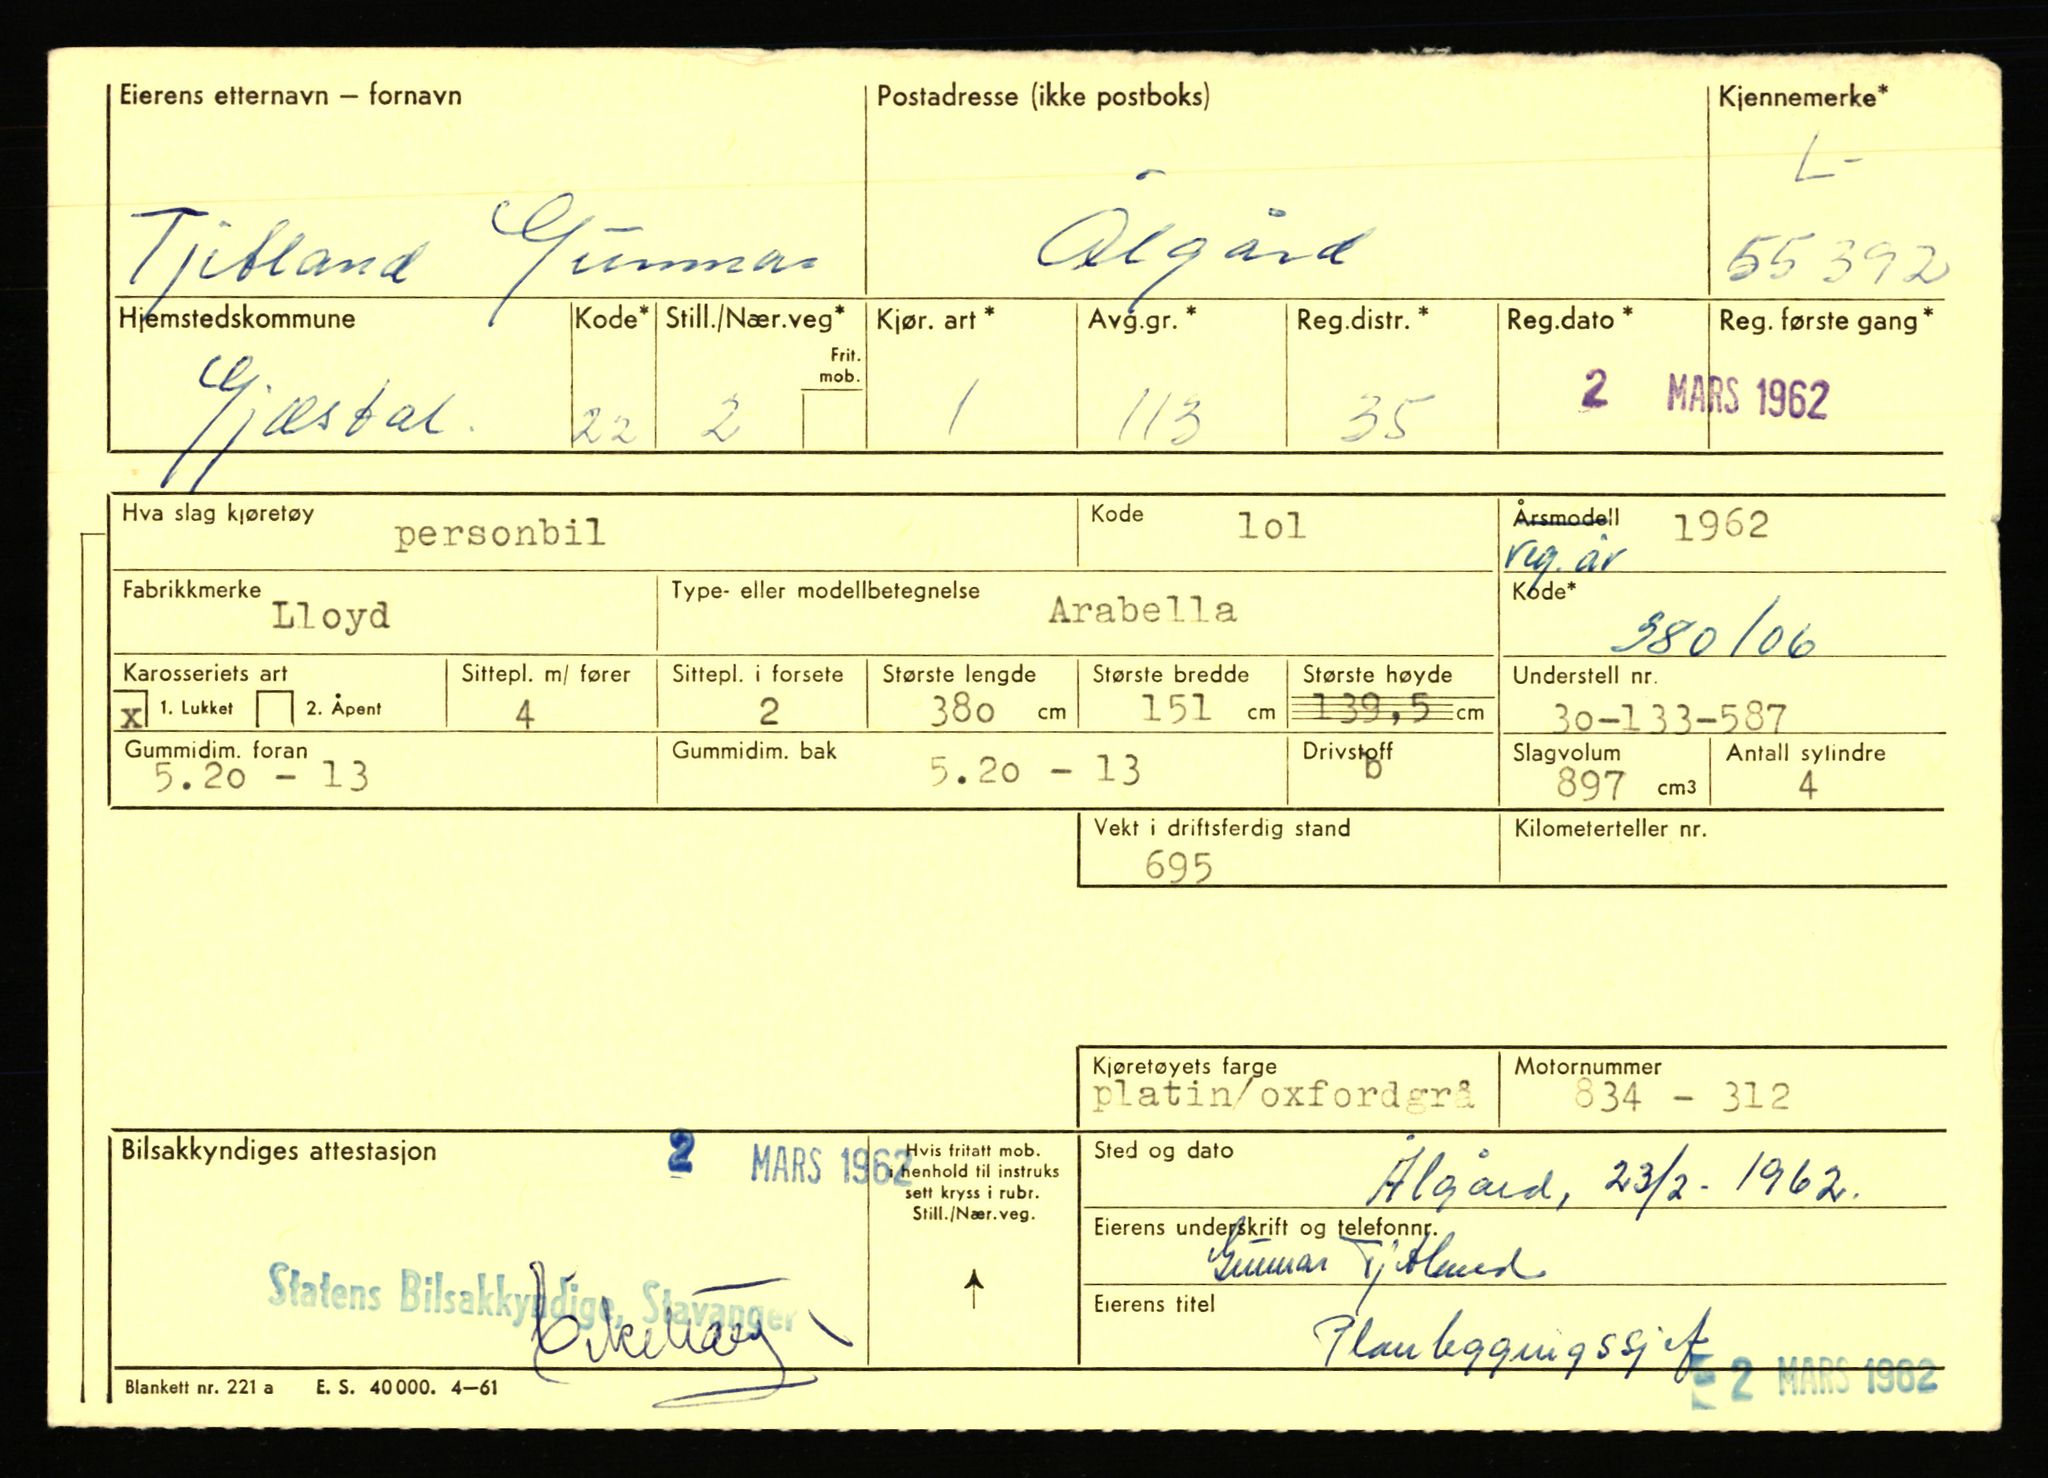 Eierens etternavn – fornavn Postadresse (ikke postboks) Kjennemerke*
L-
Tjitland Gunnar Ålgård 55392
Hjemstedskommune Kode* Still./Nær.veg* Kjør. art * Avg.gr. * Reg.distr. * Reg.dato * Reg. første gang *
Frit. mob.
Gjæstal. 22 2 1 113 35 2 MARS 1962
Hva slag kjøretøy personbil Kode lol Årsmodell 1962
reg. år
Fabrikkmerke Lloyd Type- eller modellbetegnelse Arabella Kode*
380/06
Karosseriets art Sittepl. m/ fører Sittepl. i forsete Største lengde Største bredde Største høyde Understell nr.
x 1. Lukket 2. Åpent 4 2 380 cm 151 cm 139,5 cm 30-133-587
Gummidim. foran Gummidim. bak Drivstoff Slagvolum Antall sylindre
5.20 - 13 5.20 - 13 b 897 cm3 4
Vekt i driftsferdig stand Kilometerteller nr.
695
Kjøretøyets farge Motornummer
platin/oxfordgrå 834 - 312
Bilsakkyndiges attestasjon 2 MARS 1962
Hvis fritatt mob.
i henhold til instruks
sett kryss i rubr.
Still./Nær.veg.
Sted og dato
Ålgård, 23/2 - 1962.
Eierens underskrift og telefonnr.
Gunnar Tjitland
Statens Bilsakkyndige, Stavanger
Eierens titel
Planleggingssjef
2 MARS 1962
Blankett nr. 221 a E. S. 40 000. 4–61